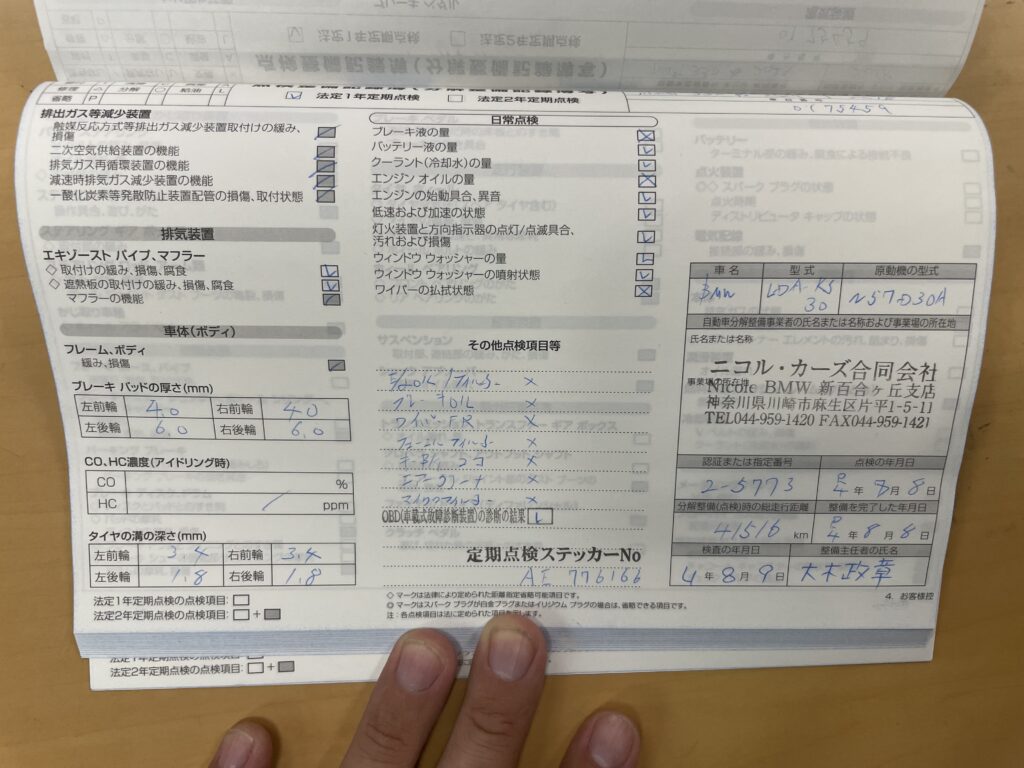 法定1年定期点検
法定2年定期点検
省略 P
0C75459
排出ガス等減少装置
触媒反応方式等排出ガス減少装置取付けの緩み、
損傷
二次空気供給装置の機能
排気ガス再循環装置の機能
減速時排気ガス減少装置の機能
一酸化炭素等発散防止装置配管の損傷、取付状態
排気装置
エキゾースト パイプ、マフラー
◇ 取付けの緩み、損傷、腐食
◇ 遮熱板の取付けの緩み、損傷、腐食
マフラーの機能
車体(ボディ)
フレーム、ボディ
緩み、損傷
ブレーキ パッドの厚さ(mm)
左前輪 4.0 右前輪 4.0
左後輪 6.0 右後輪 6.0
CO、HC濃度(アイドリング時)
CO %
HC ppm
タイヤの溝の深さ(mm)
左前輪 3.4 右前輪 3.4
左後輪 1.8 右後輪 1.8
法定1年定期点検の点検項目:
法定2年定期点検の点検項目: +
日常点検
ブレーキ液の量
バッテリー液の量
クーラント(冷却水)の量
エンジン オイルの量
エンジンの始動具合、異音
低速および加速の状態
灯火装置と方向指示器の点灯/点滅具合、
汚れおよび損傷
ウィンドウ ウォッシャーの量
ウィンドウ ウォッシャーの噴射状態
ワイパーの払拭状態
その他点検項目等
ブレーキOIL ×
ワイパFR ×
エアークリーナ ×
マイクロフィルター ×
OBD(車載式故障診断装置)の診断の結果
定期点検ステッカーNo
AE 776166
◇ マークは法律により定められた距離指定省略可能項目です。
◎ マークはスパーク プラグが白金プラグまたはイリジウム プラグの場合は、省略できる項目です。
注:各点検項目は法に定められた項目を記します。
車名 型式 原動機の型式
BMW LDA-KS30 N57D30A
自動車分解整備事業者の氏名または名称および事業場の所在地
氏名または名称
ニコル・カーズ合同会社
事業場の所在地
Nicole BMW 新百合ヶ丘支店
神奈川県川崎市麻生区片平1-5-11
TEL044-959-1420 FAX044-959-1421
認証または指定番号 点検の年月日
2-5773 R4年8月8日
分解整備(点検)時の総走行距離 整備を完了した年月日
41516 km R4年8月8日
検査の年月日 整備主任者の氏名
4年8月9日 大木政章
4. お客様控
法定2年定期点検の点検項目: +